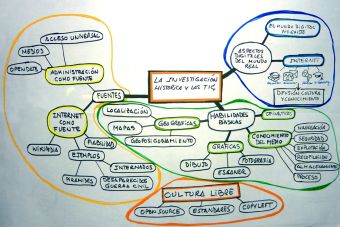 LA INVESTIGACIÓN
HISTÓRICA Y LAS TIC
FUENTES
ADMINISTRACIÓN
COMO FUENTE
ACCESO UNIVERSAL
MEDIOS
OPENDATA
INTERNET
COMO
FUENTE
FIABILIDAD
WIKIPEDIA
EJEMPLOS
INTERNADOS
PIRÁMIDES
DESAPARECIDOS
GUERRA CIVIL
ASPECTOS
DIGITALES DEL
MUNDO
REAL
EL MUNDO DIGITAL
NO EXISTE
INTERNET
DIFUSIÓN CULTURA
Y CONOCIMIENTO
HABILIDADES
BÁSICAS
GEOGRÁFICAS
LOCALIZACIÓN
MAPAS
GEOPOSICIONAMIENTO
GRÁFICAS
DIBUJO
ESCANER
FOTOGRAFÍA
CONOCIMIENTO
DEL MEDIO
NAVEGACIÓN
SEGURIDAD
EXPLOTACIÓN
RECOPILACIÓN
ALMACENAMIENTO
PROCESO
CULTURA LIBRE
OPEN SOURCE
ESTÁNDARES
COPYLEFT